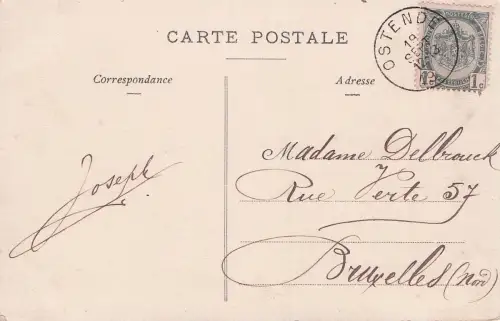 CARTE POSTALE
Correspondance
Adresse
OSTENDE
19
1c
Joseph
Madame Delbrouck
Rue Verte 57
Bruxelles (Nord)